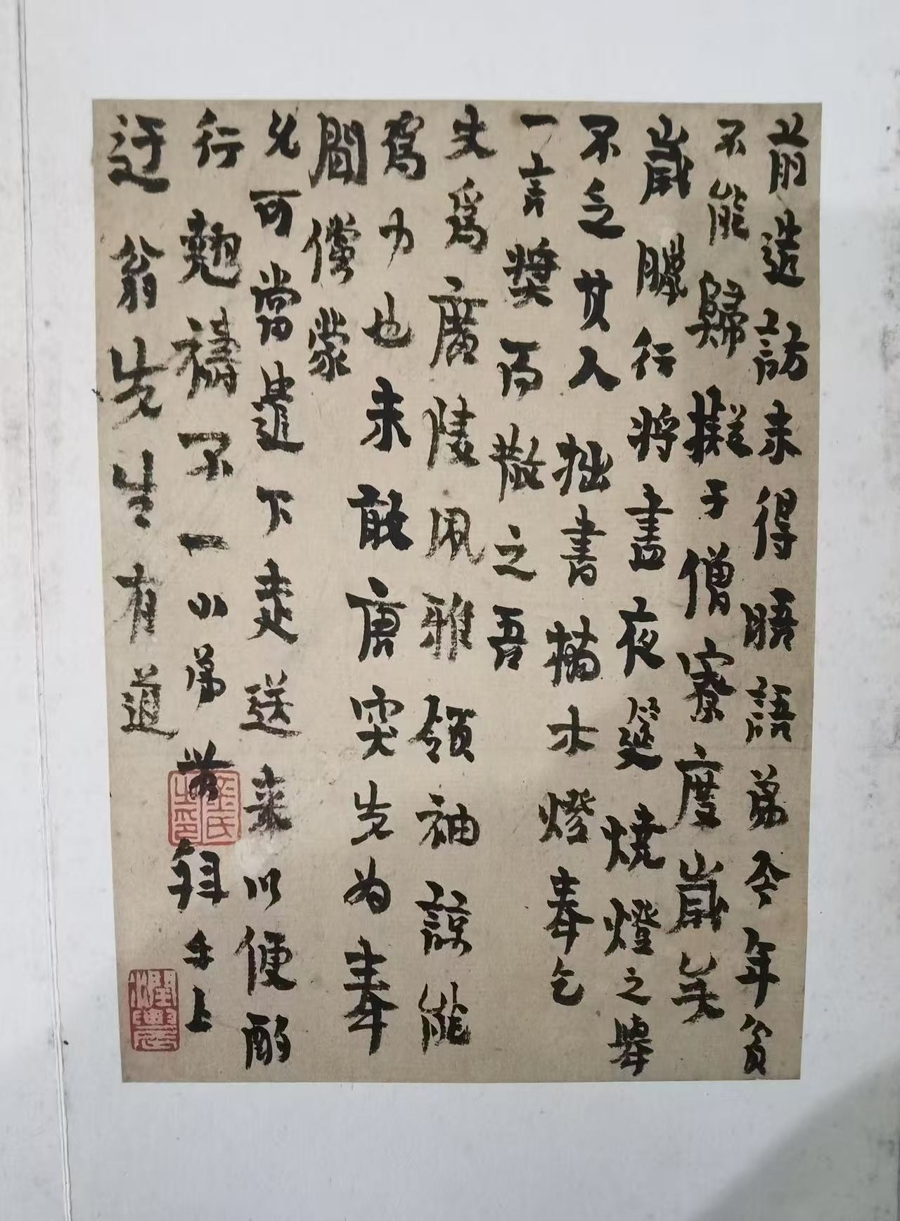 前造訪未得晤語弟今年貧
不能歸擬于僧寮度歲矣
歲臘行將晝夜筵燒燈之舉
不乏其人拙書描木燈奉乞
一言獎而散之吾
丈為廣陵風雅領袖諒能
為力也未敢唐突先為奉
聞儻蒙
允可當遣下走送來以便酌
行翹禱不一小弟 拜手上
迂翁先生有道